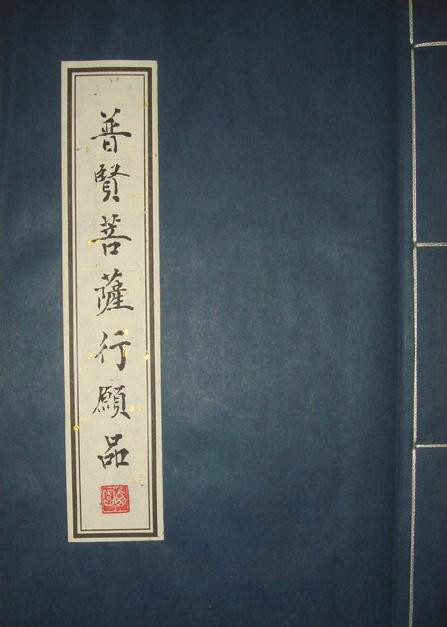 普賢菩薩行願品